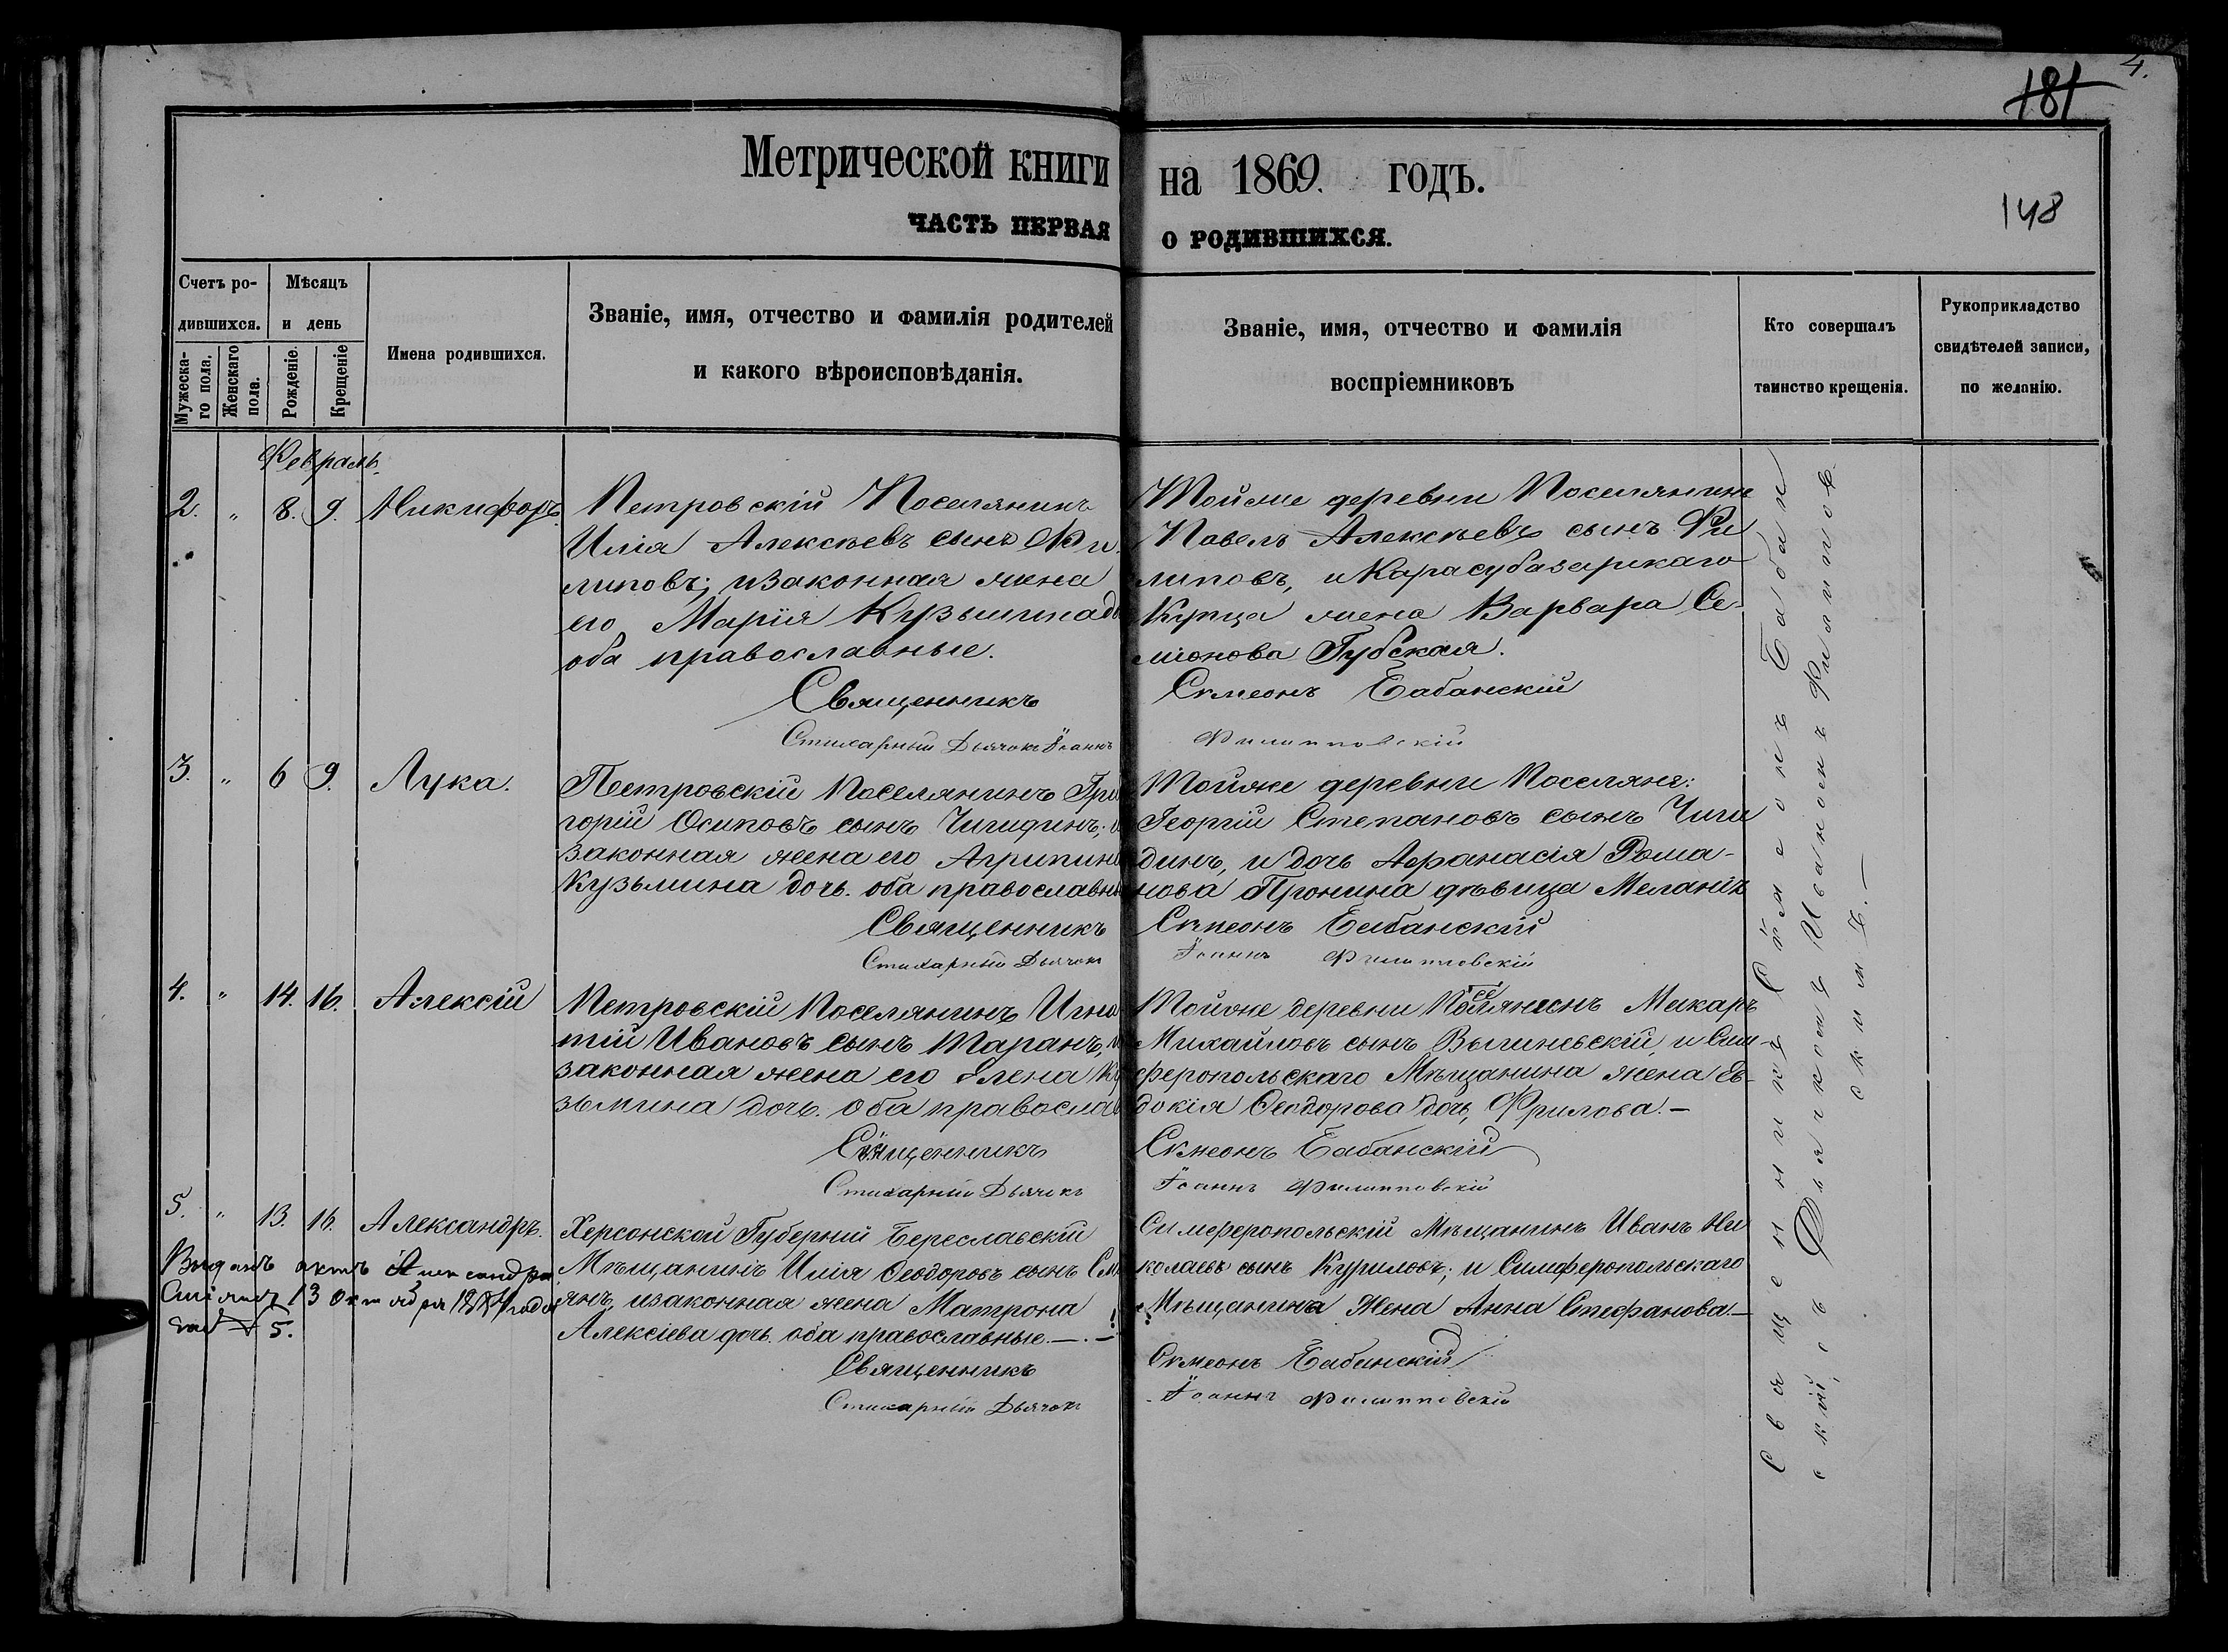 4.
181
148
Метрической книги на 1869. годъ.
ЧАСТЬ ПЕРВАЯ О РОДИВШИХСЯ.
Счетъ ро-
дившихся.
Мужеска-
го пола.
Женскаго
пола.
Мѣсяцъ
и день
Рожденіе.
Крещеніе
Имена родившихся.
Званіе, имя, отчество и фамилія родителей
и какого вѣроисповѣданія.
Званіе, имя, отчество и фамилія
воспріемниковъ
Кто совершалъ
таинство крещенія.
Рукоприкладство
свидѣтелей записи,
по желанію.
Февраль.
2. " 8. 9. Никифоръ.
Петровскій Поселянинъ
Илія Алексѣевъ сынъ Фи-
липовъ; и законная жена
его Марія Кузьмина до
оба православные.
Священникъ
Стихарный Дьячокъ Іоаннъ
Тойже деревни Поселянинъ
Павелъ Алексѣевъ сынъ Фи
липовъ, и Карасубазарскаго
Купца жена Варвара Се-
міонова Губская.
Симеонъ Бабанскій
Филипповскій
3. " 6 9. Лука.
Петровскій Поселянинъ Гри
горій Осиповъ сынъ Чигидинъ; и
законная жена его Агрипина
Кузьмина дочь. оба православны
Священникъ
Стихарный Дьячокъ
Тойже деревни Поселяня:
Георгій Степановъ сынъ Чиги
динъ, и дочь Афанасія Рома-
нова Пронина дѣвица Меланія
Симеонъ Бабанскій
Іоаннъ Филипповскій
4. " 14. 16. Алексій
Петровскій Поселянинъ Игна
тій Ивановъ сынъ Таранъ, и
законная жена его Елена Ку
зьмина дочь. Оба правосла
Священникъ
Стихарный Дьячокъ
Тойже деревни Поселянинъ Макаръ
Михайловъ сынъ Вылиневскій, и Сим-
феропольскаго Мѣщанина жена Ев-
докія Феодорова дочь, Фрилова.—
Симеонъ Бабанскій
Іоаннъ Филипповскій
5. " 13. 16. Александръ.
Выданъ актъ Александра
13 Октября
5.
Херсонской Губерніи Береславскій
Мѣщанинъ Илія Феодоровъ сынъ См
янъ, и законная жена Матрона
Алексіева дочь. оба православные.—.—
Священникъ
Стихарный Дьячокъ
Симферопольскій Мѣщанинъ Иванъ Ни
колаевъ сынъ Куриловъ; и Симферопольскаго
Мѣщанина Жена Анна Стефанова.—
Симеонъ Бабанскій
Іоаннъ Филипповскій
Священникъ Симеонъ Бабан
скій, съ Дьячкомъ Иваномъ Филиппов-
скимъ.—